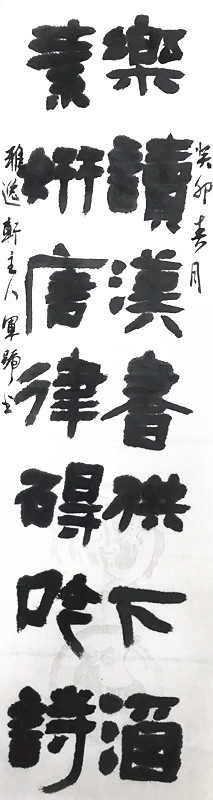 癸卯春月
樂讀漢書供下酒
素妍唐律碍吟詩
雅逸軒主人軍书